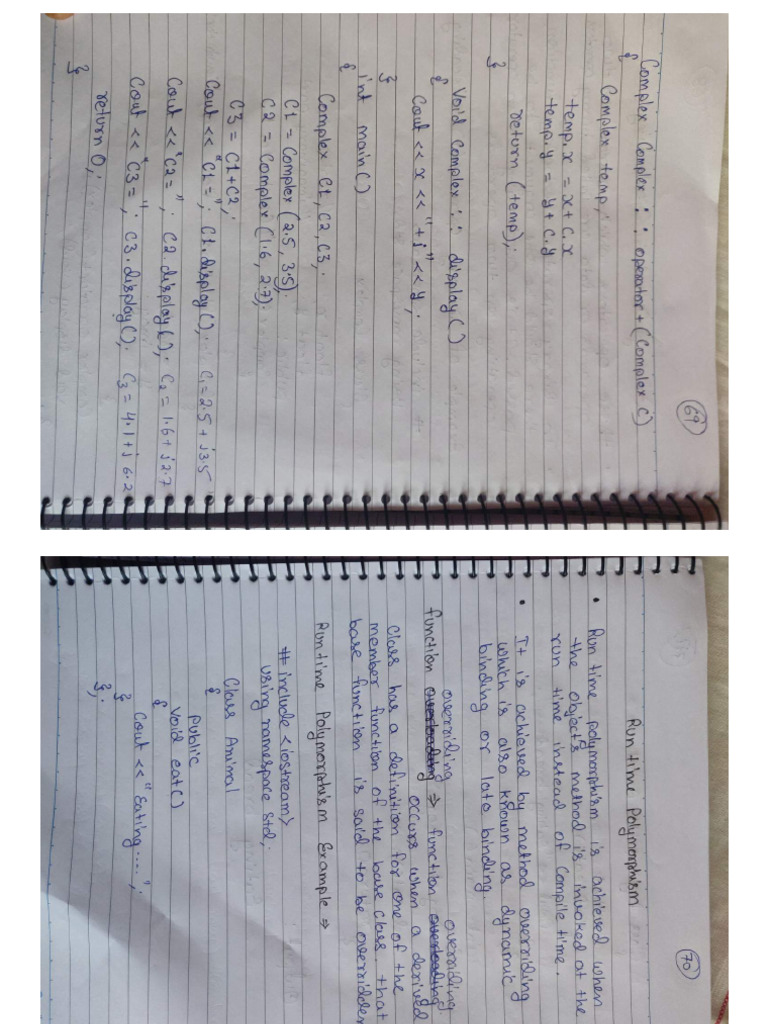 69
Complex Complex : : operator+ (Complex C)
{
Complex temp;
temp.x = x+c.x
temp.y = y+c.y
return (temp);
}
Void Complex : : display()
{
Cout << x << "+j" << y;
}
int main()
{
Complex C1, C2, C3;
C1 = Complex (2.5, 3.5);
C2 = Complex (1.6, 2.7);
C3 = C1+C2;
Cout << "C1 = "; C1.display(); C1 = 2.5 + j3.5
Cout << "C2 = "; C2.display(); C2 = 1.6 + j2.7
Cout << "C3 = "; C3.display(); C3 = 4.1 + j 6.2
return 0;
}
70
Run time Polymorphism
• Run time polymorphism is achieved when
the object's method is invoked at the
run time instead of Compile time.
• It is achieved by method overriding
which is also known as dynamic
binding or late binding.
function overriding ⇒ function overriding
occurs when a derived
Class has a definition for one of the
member function of the base class. that
base function is said to be overridden
Runtime Polymorphism Example ⇒
# include <iostream>
using namespace Std;
Class Animal
{
public
Void eat()
{
Cout << "Eating....";
}
};